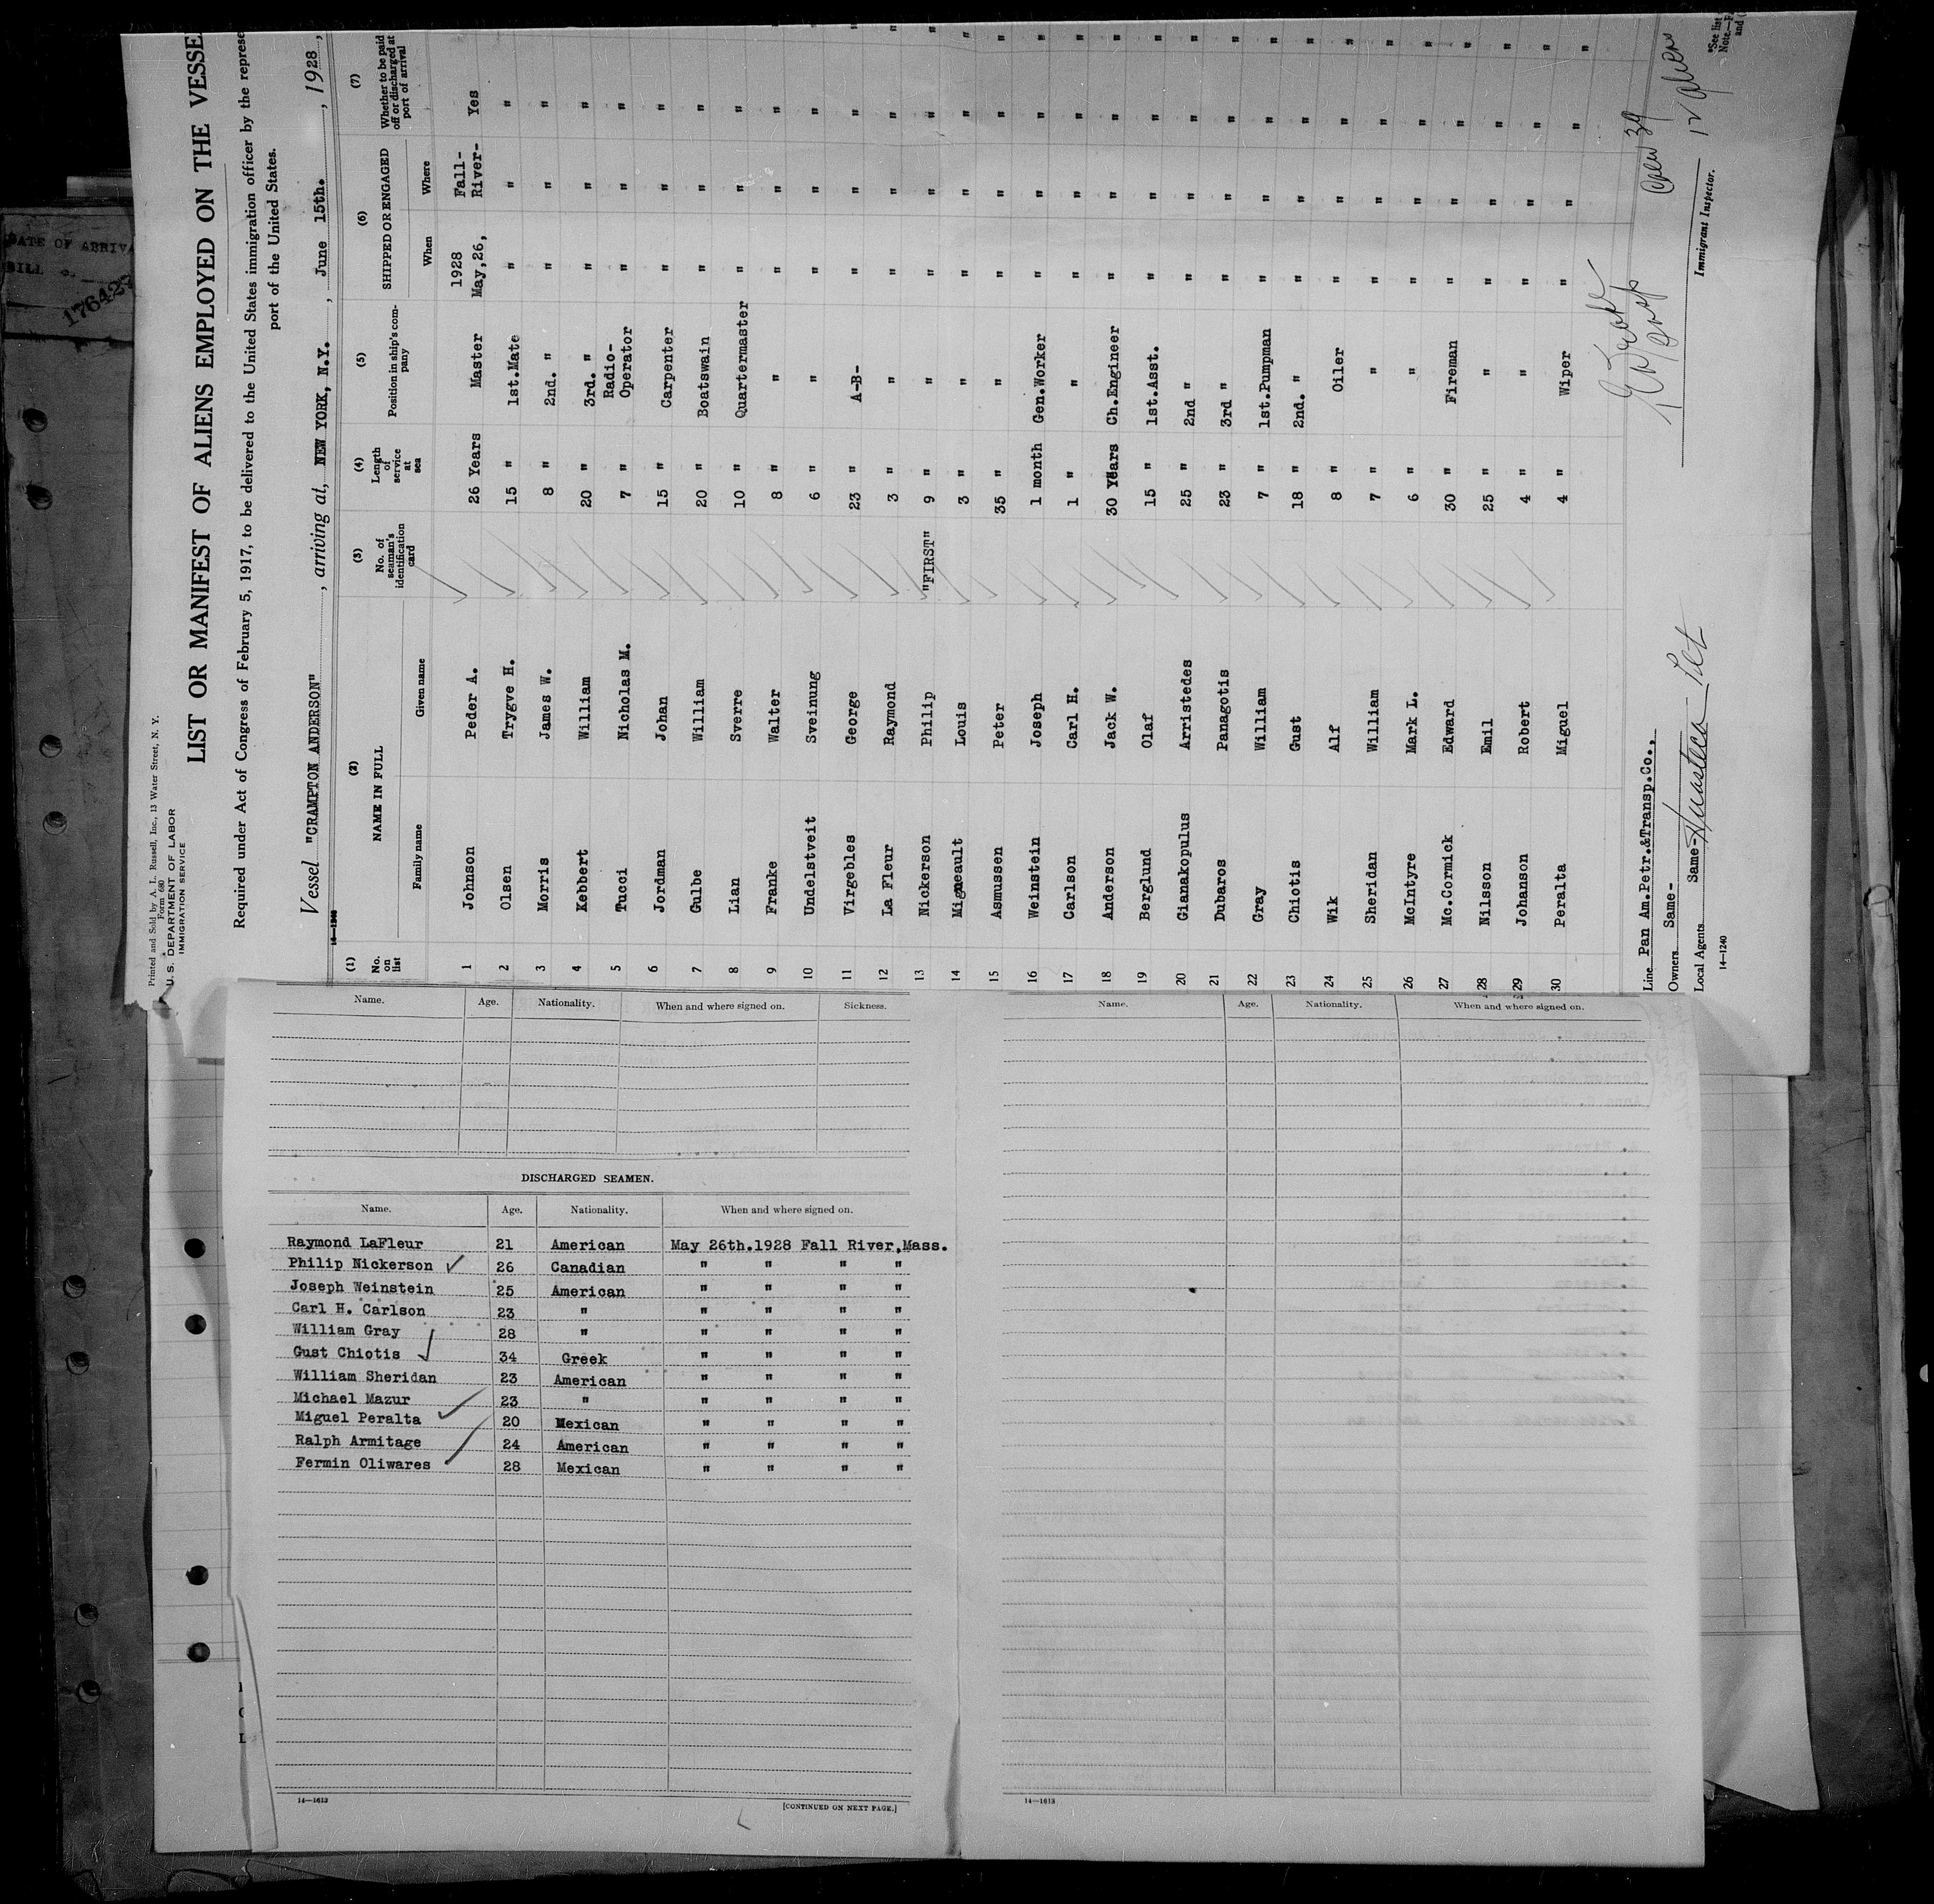 DATE OF ARRIVA
BILL
17642
Printed and Sold by A. L. Russell, Inc., 13 Water Street, N. Y.
Form 680
U. S. DEPARTMENT OF LABOR
IMMIGRATION SERVICE
LIST OR MANIFEST OF ALIENS EMPLOYED ON THE VESSE
Required under Act of Congress of February 5, 1917, to be delivered to the United States immigration officer by the represe
port of the United States.
Vessel "CRAMPTON ANDERSON", arriving at, NEW YORK, N.Y., June 15th., 1928,
14—1240
(1) (2) (3) (4) (5) (6) (7)
No. on list NAME IN FULL No. of seaman's identification card Length of service at sea Position in ship's company SHIPPED OR ENGAGED Whether to be paid off or discharged at port of arrival
Family name Given name When Where
1 Johnson Peder A. 26 Years Master 1928 May,26, Fall-River- Yes
2 Olsen Trygve H. 15 " 1st.Mate " " " "
3 Morris James W. 8 " 2nd. " " " " "
4 Kebbert William 20 " 3rd. " " " " "
5 Tucci Nicholas M. 7 " Radio-Operator " " " "
6 Jordman Johan 15 " Carpenter " " " "
7 Gulbe William 20 " Boatswain " " " "
8 Lian Sverre 10 " Quartermaster " " " "
9 Franke Walter 8 " " " " " "
10 Undelstveit Sveinung 6 " " " " " "
11 Virgebles George 23 " A-B- " " " "
12 La Fleur Raymond 3 " " " " " "
13 Nickerson Philip "FIRST" 9 " " " " " "
14 Migneault Louis 3 " " " " " "
15 Asmussen Peter 35 " " " " " "
16 Weinstein Joseph 1 month Gen.Worker " " " "
17 Carlson Carl H. 1 " " " " " "
18 Anderson Jack W. 30 Years Ch.Engineer " " " "
19 Berglund Olaf 15 " 1st.Asst. " " " "
20 Gianakopulus Arristedes 25 " 2nd " " " " "
21 Dubaros Panagotis 23 " 3rd " " " " "
22 Gray William 7 " 1st.Pumpman " " " "
23 Chiotis Gust 18 " 2nd. " " " " "
24 Wik Alf 8 " Oiler " " " "
25 Sheridan William 7 " " " " " "
26 McIntyre Mark L. 6 " " " " " "
27 Mc.Cormick Edward 30 " Fireman " " " "
28 Nilsson Emil 25 " " " " " "
29 Johanson Robert 4 " " " " " "
30 Peralta Miguel 4 " Wiper " " " "
Line Pan Am.Petr.&Transp.Co.,
Crew 39
Owners Same-
Local Agents Same- Huasteca Pet
Immigrant Inspector.
14—1240
*See list
Note.—F
and (
Name. Age. Nationality. When and where signed on. Sickness.
DISCHARGED SEAMEN.
Name. Age. Nationality. When and where signed on.
Raymond LaFleur 21 American May 26th.1928 Fall River,Mass.
Philip Nickerson 26 Canadian " " " "
Joseph Weinstein 25 American " " " "
Carl H. Carlson 23 " " " " "
William Gray 28 " " " " "
Gust Chiotis 34 Greek " " " "
William Sheridan 23 American " " " "
Michael Mazur 23 " " " " "
Miguel Peralta 20 Mexican " " " "
Ralph Armitage 24 American " " " "
Fermin Oliwares 28 Mexican " " " "
14—1613
[CONTINUED ON NEXT PAGE.]
Name. Age. Nationality. When and where signed on.
14—1613